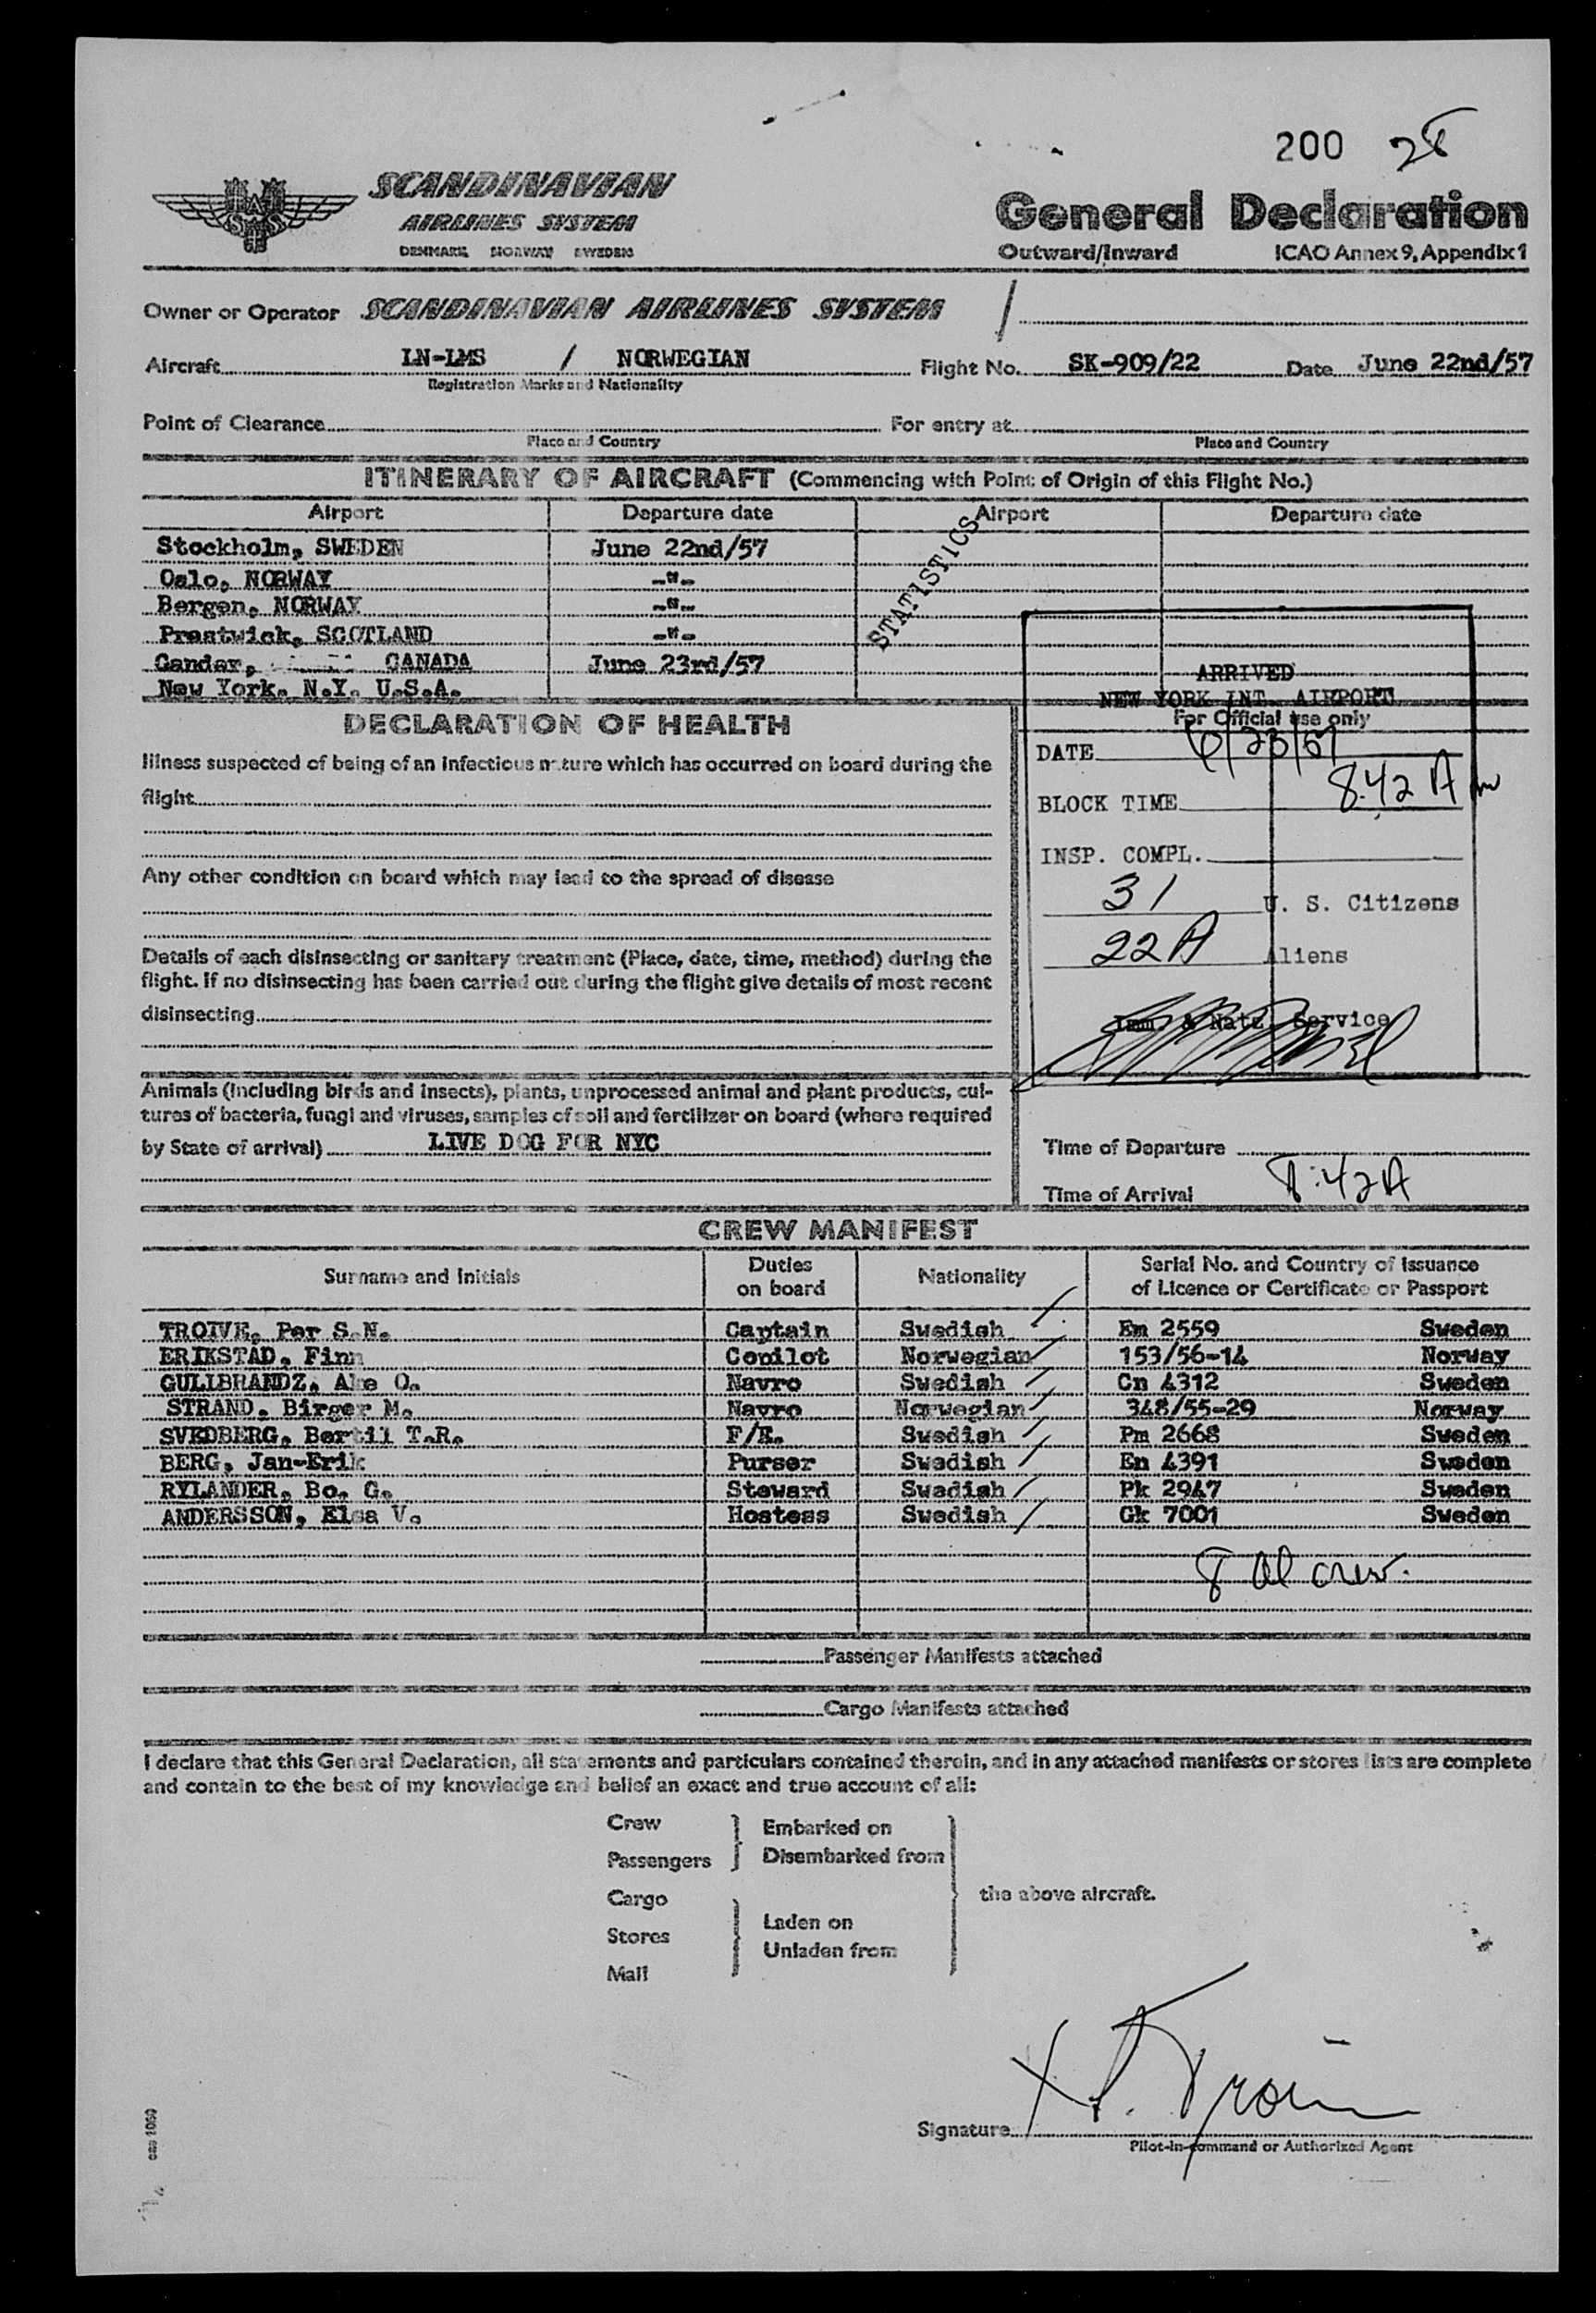 200 28
SCANDINAVIAN
AIRLINES SYSTEM
DENMARK NORWAY SWEDEN
General Declaration
Outward/Inward ICAO Annex 9, Appendix 1
Owner or Operator SCANDINAVIAN AIRLINES SYSTEM /
Aircraft LN-LMS / NORWEGIAN Flight No. SK-909/22 Date June 22nd/57
Registration Marks and Nationality
Point of Clearance For entry at
Place and Country Place and Country
ITINERARY OF AIRCRAFT (Commencing with Point of Origin of this Flight No.)
Airport Departure date Airport Departure date
Stockholm, SWEDEN June 22nd/57
Oslo, NORWAY -"-
Bergen, NORWAY -"-
Prestwick, SCOTLAND -"-
Gander, CANADA June 23rd/57
New York, N.Y. U.S.A.
STATISTICS
ARRIVED
NEW YORK INT. AIRPORT
For Official use only
DATE 6/23/57
BLOCK TIME 8:42 Am
INSP. COMPL.
31 U. S. Citizens
22 A Aliens
Imm. & Natz. Service
DECLARATION OF HEALTH
Illness suspected of being of an infectious nature which has occurred on board during the
flight
Any other condition on board which may lead to the spread of disease
Details of each disinsecting or sanitary treatment (Place, date, time, method) during the
flight. If no disinsecting has been carried out during the flight give details of most recent
disinsecting
Animals (including birds and insects), plants, unprocessed animal and plant products, cul-
tures of bacteria, fungi and viruses, samples of soil and fertilizer on board (where required
by State of arrival) LIVE DOG FOR NYC
Time of Departure
Time of Arrival 8:42A
CREW MANIFEST
Surname and Initials Duties on board Nationality Serial No. and Country of Issuance of Licence or Certificate or Passport
TROIVE, Per S.N. Captain Swedish Em 2559 Sweden
ERIKSTAD, Finn Copilot Norwegian 153/56-14 Norway
GULLBRANDZ, Ake O. Navro Swedish Cn 4312 Sweden
STRAND, Birger M. Navro Norwegian 348/55-29 Norway
SVEDBERG, Bertil T.R. F/E. Swedish Pm 2668 Sweden
BERG, Jan-Erik Purser Swedish En 4391 Sweden
RYLANDER, Bo. G. Steward Swedish Pk 2947 Sweden
ANDERSSON, Elsa V. Hostess Swedish Gk 7001 Sweden
8 al crew.
Passenger Manifests attached
Cargo Manifests attached
I declare that this General Declaration, all statements and particulars contained therein, and in any attached manifests or stores lists are complete
and contain to the best of my knowledge and belief an exact and true account of all:
Crew
Passengers
Embarked on
Disembarked from
Cargo
Stores
Mail
Laden on
Unladen from
the above aircraft.
Signature
Pilot-in-command or Authorized Agent